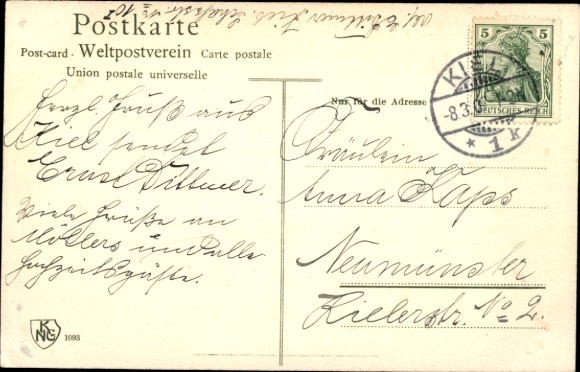 Postkarte
Post-card - Weltpostverein Carte postale
Union postale universelle
Nur für die Adresse
Herzl. Gruß aus
Kiel sendet
Ernst Dittmer.
Viele Grüße an
Möllers und alle
Hochzeitsgäste.
Fräulein
Anna Kaps
Neumünster
Kielerstr. No 2.
5 5
DEUTSCHES REICH
KIEL
-8.3.
* 1 k
KNG 1093